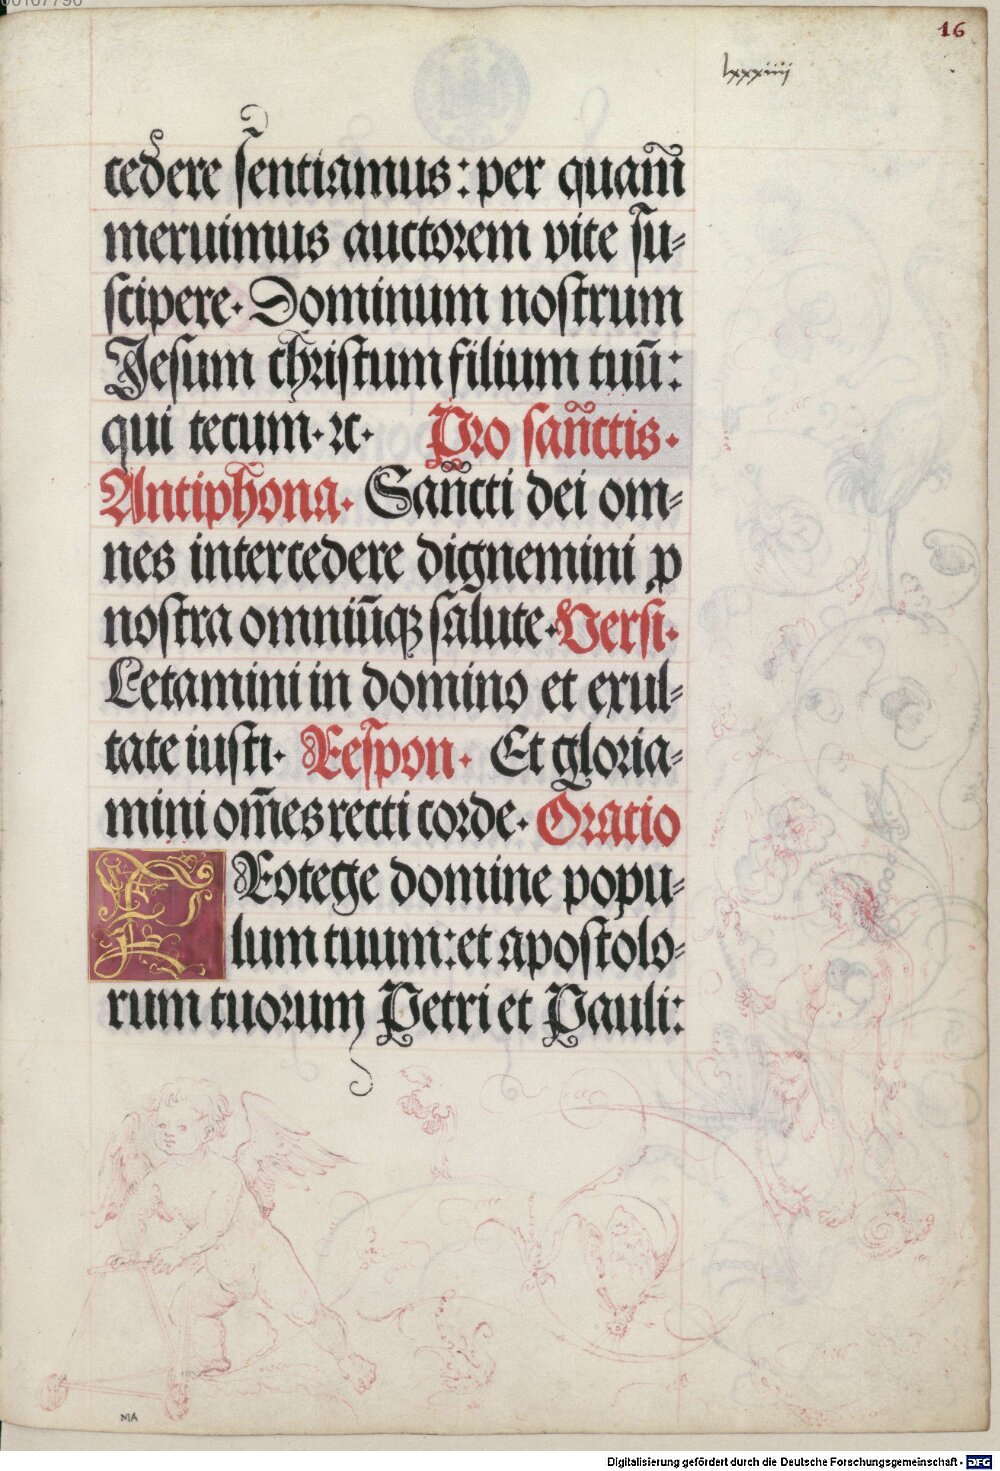 16
lxxxiiij
cedere sentiamus: per quam̄
meruimus auctorem vite su⸗
scipere. Dominum nostrum
Jesum christum filium tuū:
qui tecum. ⁊c. Pro san̄ctis.
Antiphona. San̄cti dei om⸗
nes intercedere dignemini ꝓ
nostra omniūqꝫ salute. Versi.
Letamini in domino et exul⸗
tate iusti. Respon. Et gloria⸗
mini om̄es recti corde. Oratio
PRotege domine popu⸗
lum tuum: et apostolo⸗
rum tuorum Petri et Pauli:
MA
Digitalisierung gefördert durch die Deutsche Forschungsgemeinschaft - DFG